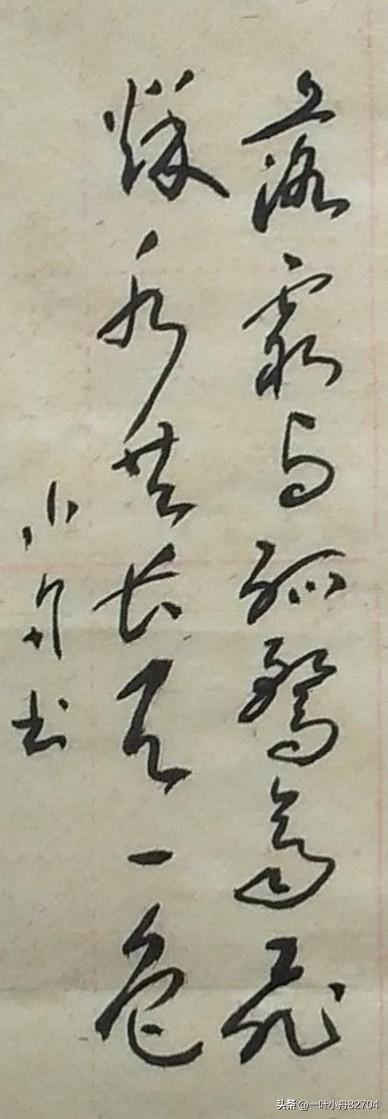 落霞与孤鹜齐飞
秋水共长天一色
小舟书
头条 @一叶小舟82704